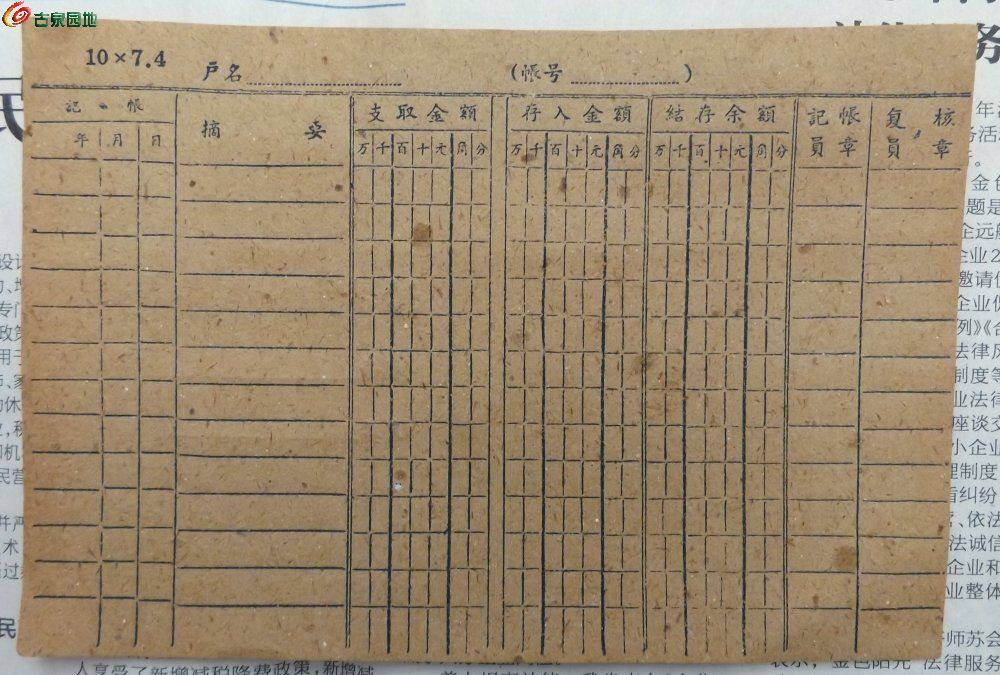 古泉园地
10×7.4
戶名 (帐号 )
記 帐 摘 要 支取金额 存入金额 结存余额 記帐員章 复核員章
年 月 日 万千百十元角分 万千百十元角分 万千百十元角分
年
务活
金色
题是
企远航
企业2
邀请
企业
列》《合
法律风
制度等
业法律
座谈交
小企业
理制度
纠纷
、依法
法诚信
企业和
业整体
师苏会
法律服务
设计
专门
政策
用于
的休
和机
民营
并严
术
民
人享受了新增减税降费政策，新增减